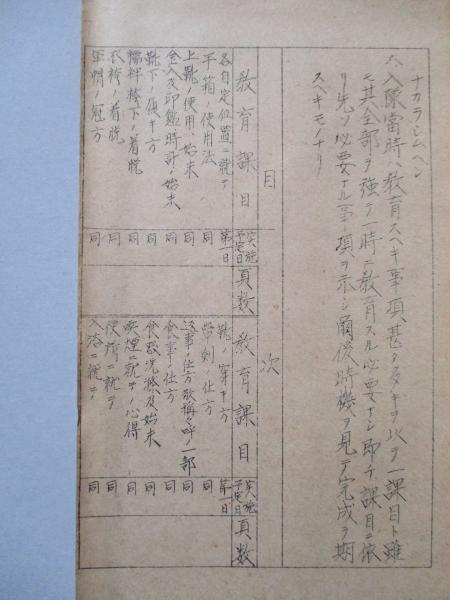 ナカラシムヘシ
六、入隊当時ハ教育スヘキ事項甚タ多キヲ以テ一課目ト雖
モ其全部ヲ強テ一時ニ教育スル必要ナシ即チ課目ニ依
リ先ツ必要ナル事項ヲ示シ爾後時機ヲ見テ完成ヲ期
スヘキモノナリ
目次
教育課目 実施予定日 頁数 教育課目 実施予定日 頁数
各自定位置ニ就テ 第一日
手箱ノ使用法 同
上靴ノ使用、始末 同
金入及印鑑時計ノ始末 同
靴下ノ履キ方 同
襦袢袴下ノ着脱 同
衣袴ノ着脱 同
軍帽ノ冠方 同
靴ノ穿キ方 第一日
帯剣ノ仕方 同
返事ノ仕方敬称ノ呼ノ一部 同
食事ノ仕方 同
食器洗滌及始末 同
喫煙ニ就テノ心得 同
便所ニ就テ 同
入浴ニ就テ 同